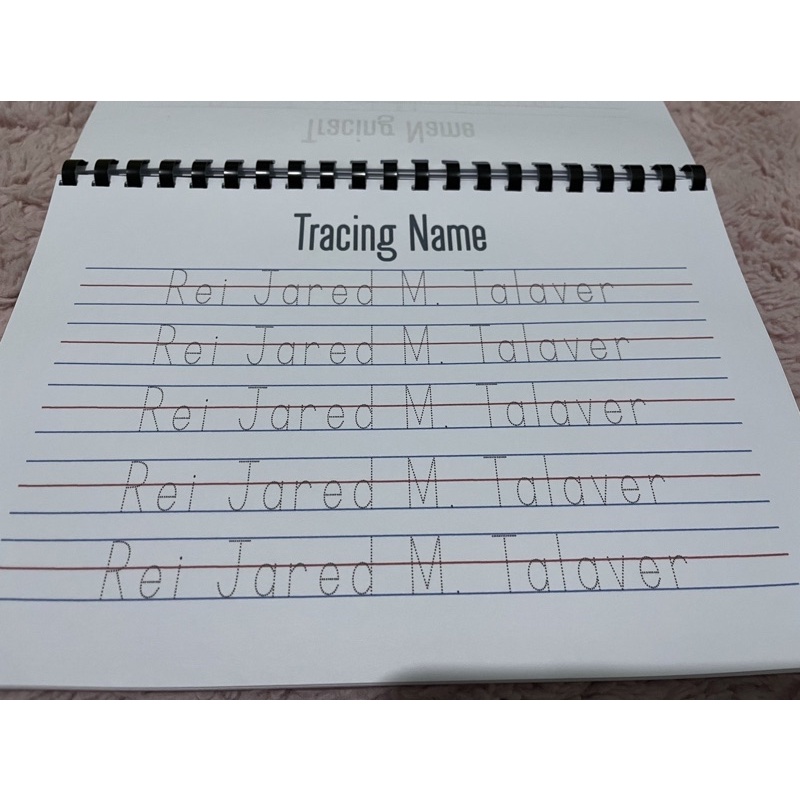 Tracing Name
Tracing Name
Rei Jared M. Talaver
Rei Jared M. Talaver
Rei Jared M. Talaver
Rei Jared M. Talaver
Rei Jared M. Talaver